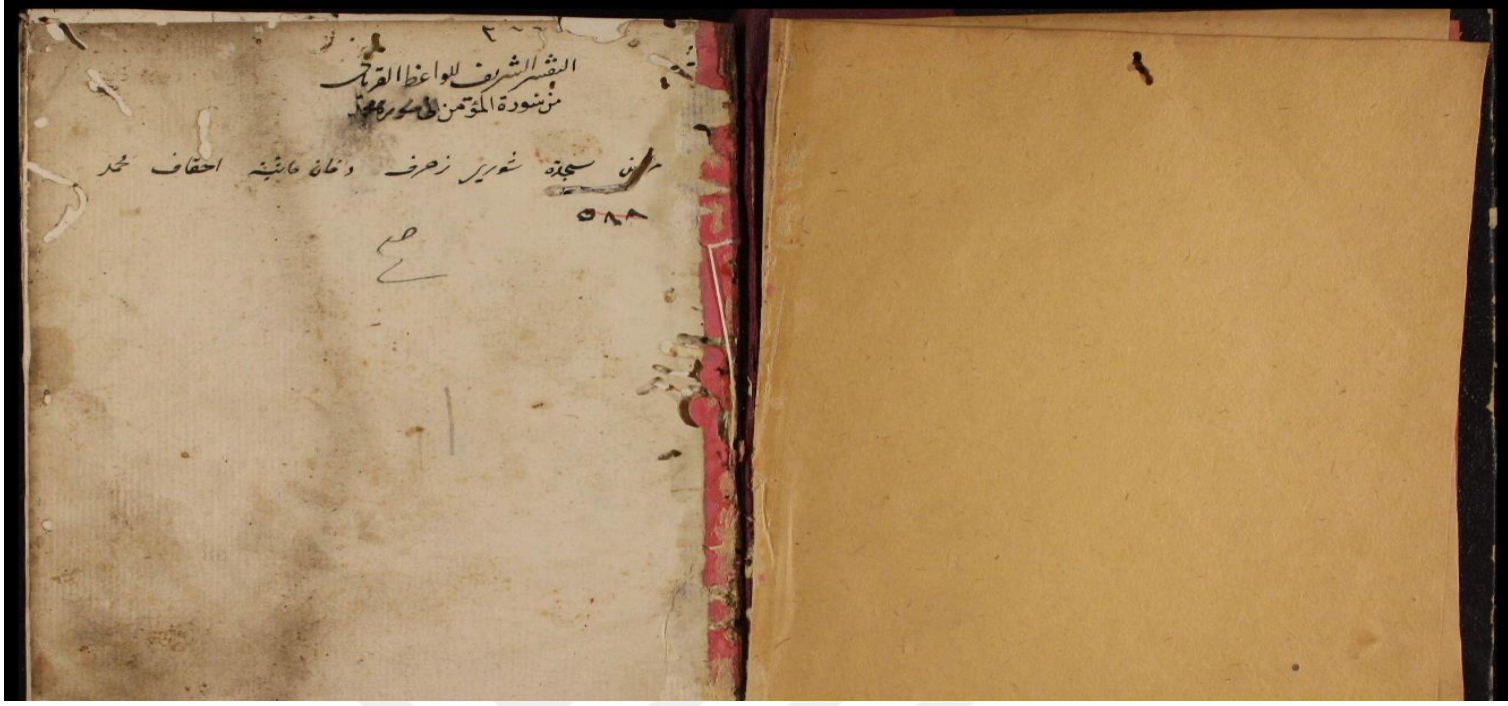 التفسير الشريف للواعظ القرماني
من سورة المؤمن الى سورة محمد
سجدة شورى زخرف دخان جاثية احقاف محمد
٥٨٨